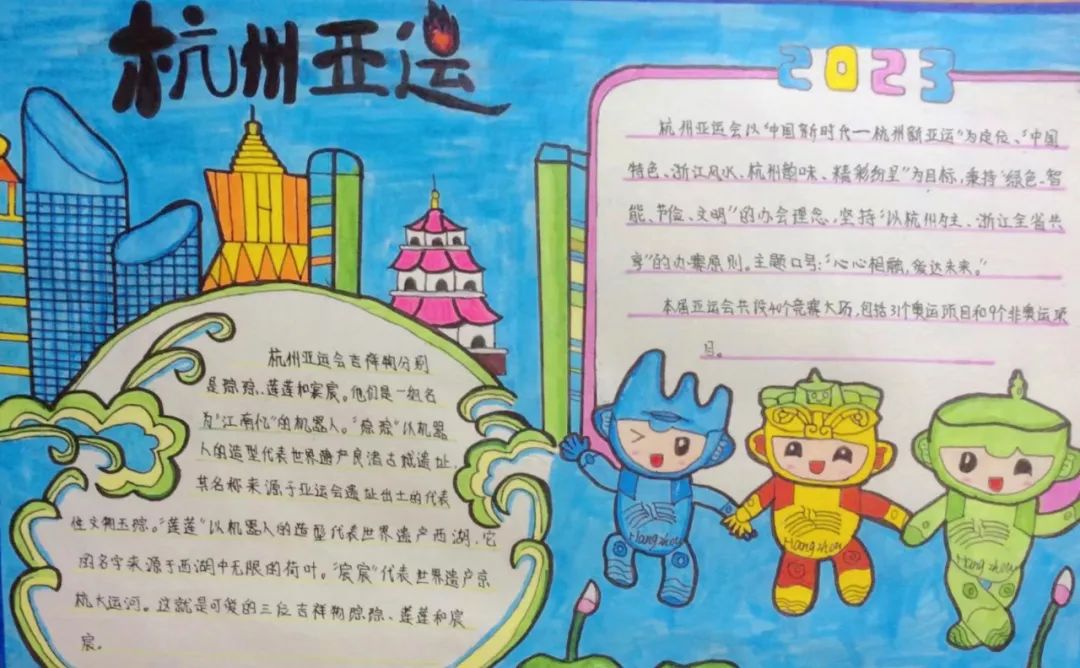 杭州亚运
2023
杭州亚运会以"中国新时代—杭州新亚运"为定位、"中国
特色、浙江风水、杭州韵味、精彩纷呈"为目标,秉持"绿色、智
能、节俭、文明"的办会理念,坚持"以杭州为主、浙江全省共
享"的办赛原则。主题口号:"心心相融,爱达未来。"
本届亚运会共设40个竞赛大项,包括31个奥运项目和9个非奥运项
目。
杭州亚运会吉祥物分别
是琮琮、莲莲和宸宸。他们是一组名
为"江南忆"的机器人。"琮琮"以机器
人的造型代表世界遗产良渚古城遗址,
其名称来源于亚运会遗址出土的代表
性文物玉琮。"莲莲"以机器人的造型代表世界遗产西湖,它
的名字来源于西湖中无限的荷叶。"宸宸"代表世界遗产京
杭大运河。这就是可爱的三位吉祥物琮琮、莲莲和宸
宸。
Hangzhou
Hangzhou
Hangzhou